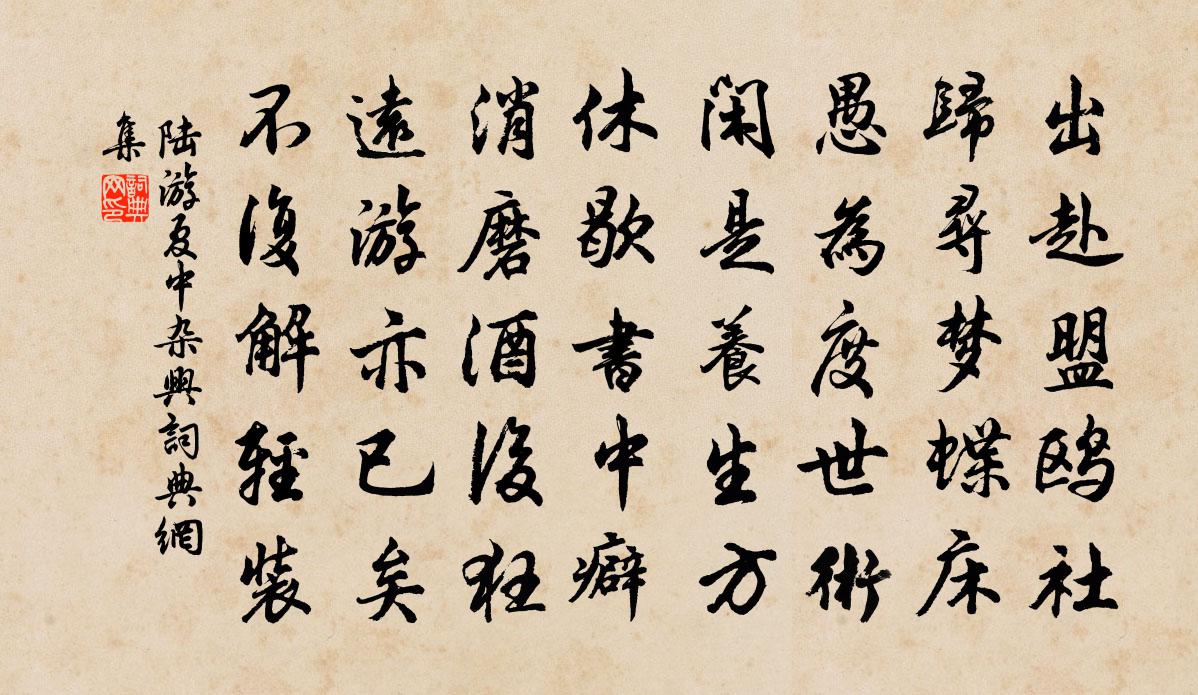 出赴盟鸥社
歸尋梦蝶床
愚為度世術
闲是養生方
休歇書中癖
消磨酒後狂
遠游亦已矣
不復解輕装
陆游夏中杂興詞典網
集
詞典
网印